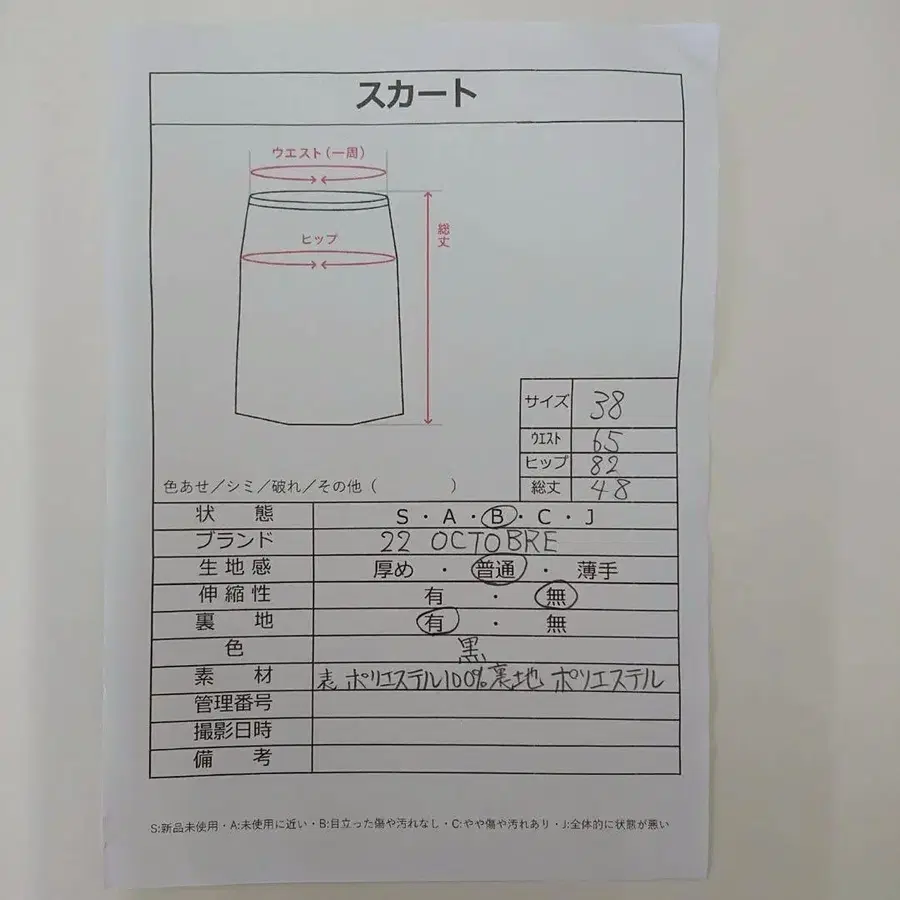 スカート
ウエスト（一周）
ヒップ
総丈
サイズ 38
ウエスト 65
ヒップ 82
総丈 48
色あせ／シミ／破れ／その他（　　　　　）
状　態 S・A・B・C・J
ブランド 22 OCTOBRE
生地感 厚め ・ 普通 ・ 薄手
伸縮性 有 ・ 無
裏　地 有 ・ 無
色 黒
素　材 表 ポリエステル100% 裏地 ポリエステル
管理番号
撮影日時
備　考
S:新品未使用・A:未使用に近い・B:目立った傷や汚れなし・C:やや傷や汚れあり・J:全体的に状態が悪い